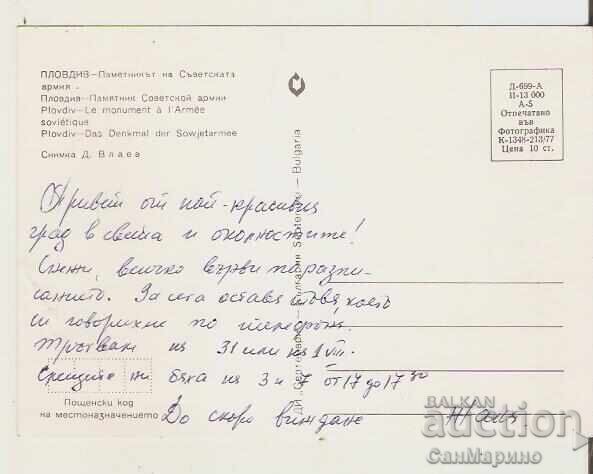 ПЛОВДИВ—Паметникът на Съветската
армия.
Пловдив—Памятник Советской армии
Plovdiv—Le monument à l'Armée
soviétique
Plovdiv—Das Denkmal der Sowjetarmee
Снимка Д. Влаев
Д-699-А
II-13 000
А-5
Отпечатано
във
Фотографика
К-1348-213/77
Цена 10 ст.
ДИ „Септември“ Bulgaria
Привет от най-красивия
град в света и околностите!
всичко върви по разпи-
санието. За сега остава това, което
си говорихме по телефона.
Тръгваме на 31 или на 1 VIII.
Срещите ни бяха на 3 и 7 от 17 до 17³⁰
До скоро виждане Жана
Пощенски код
на местоназначението
BALKAN
auction
СанМарино